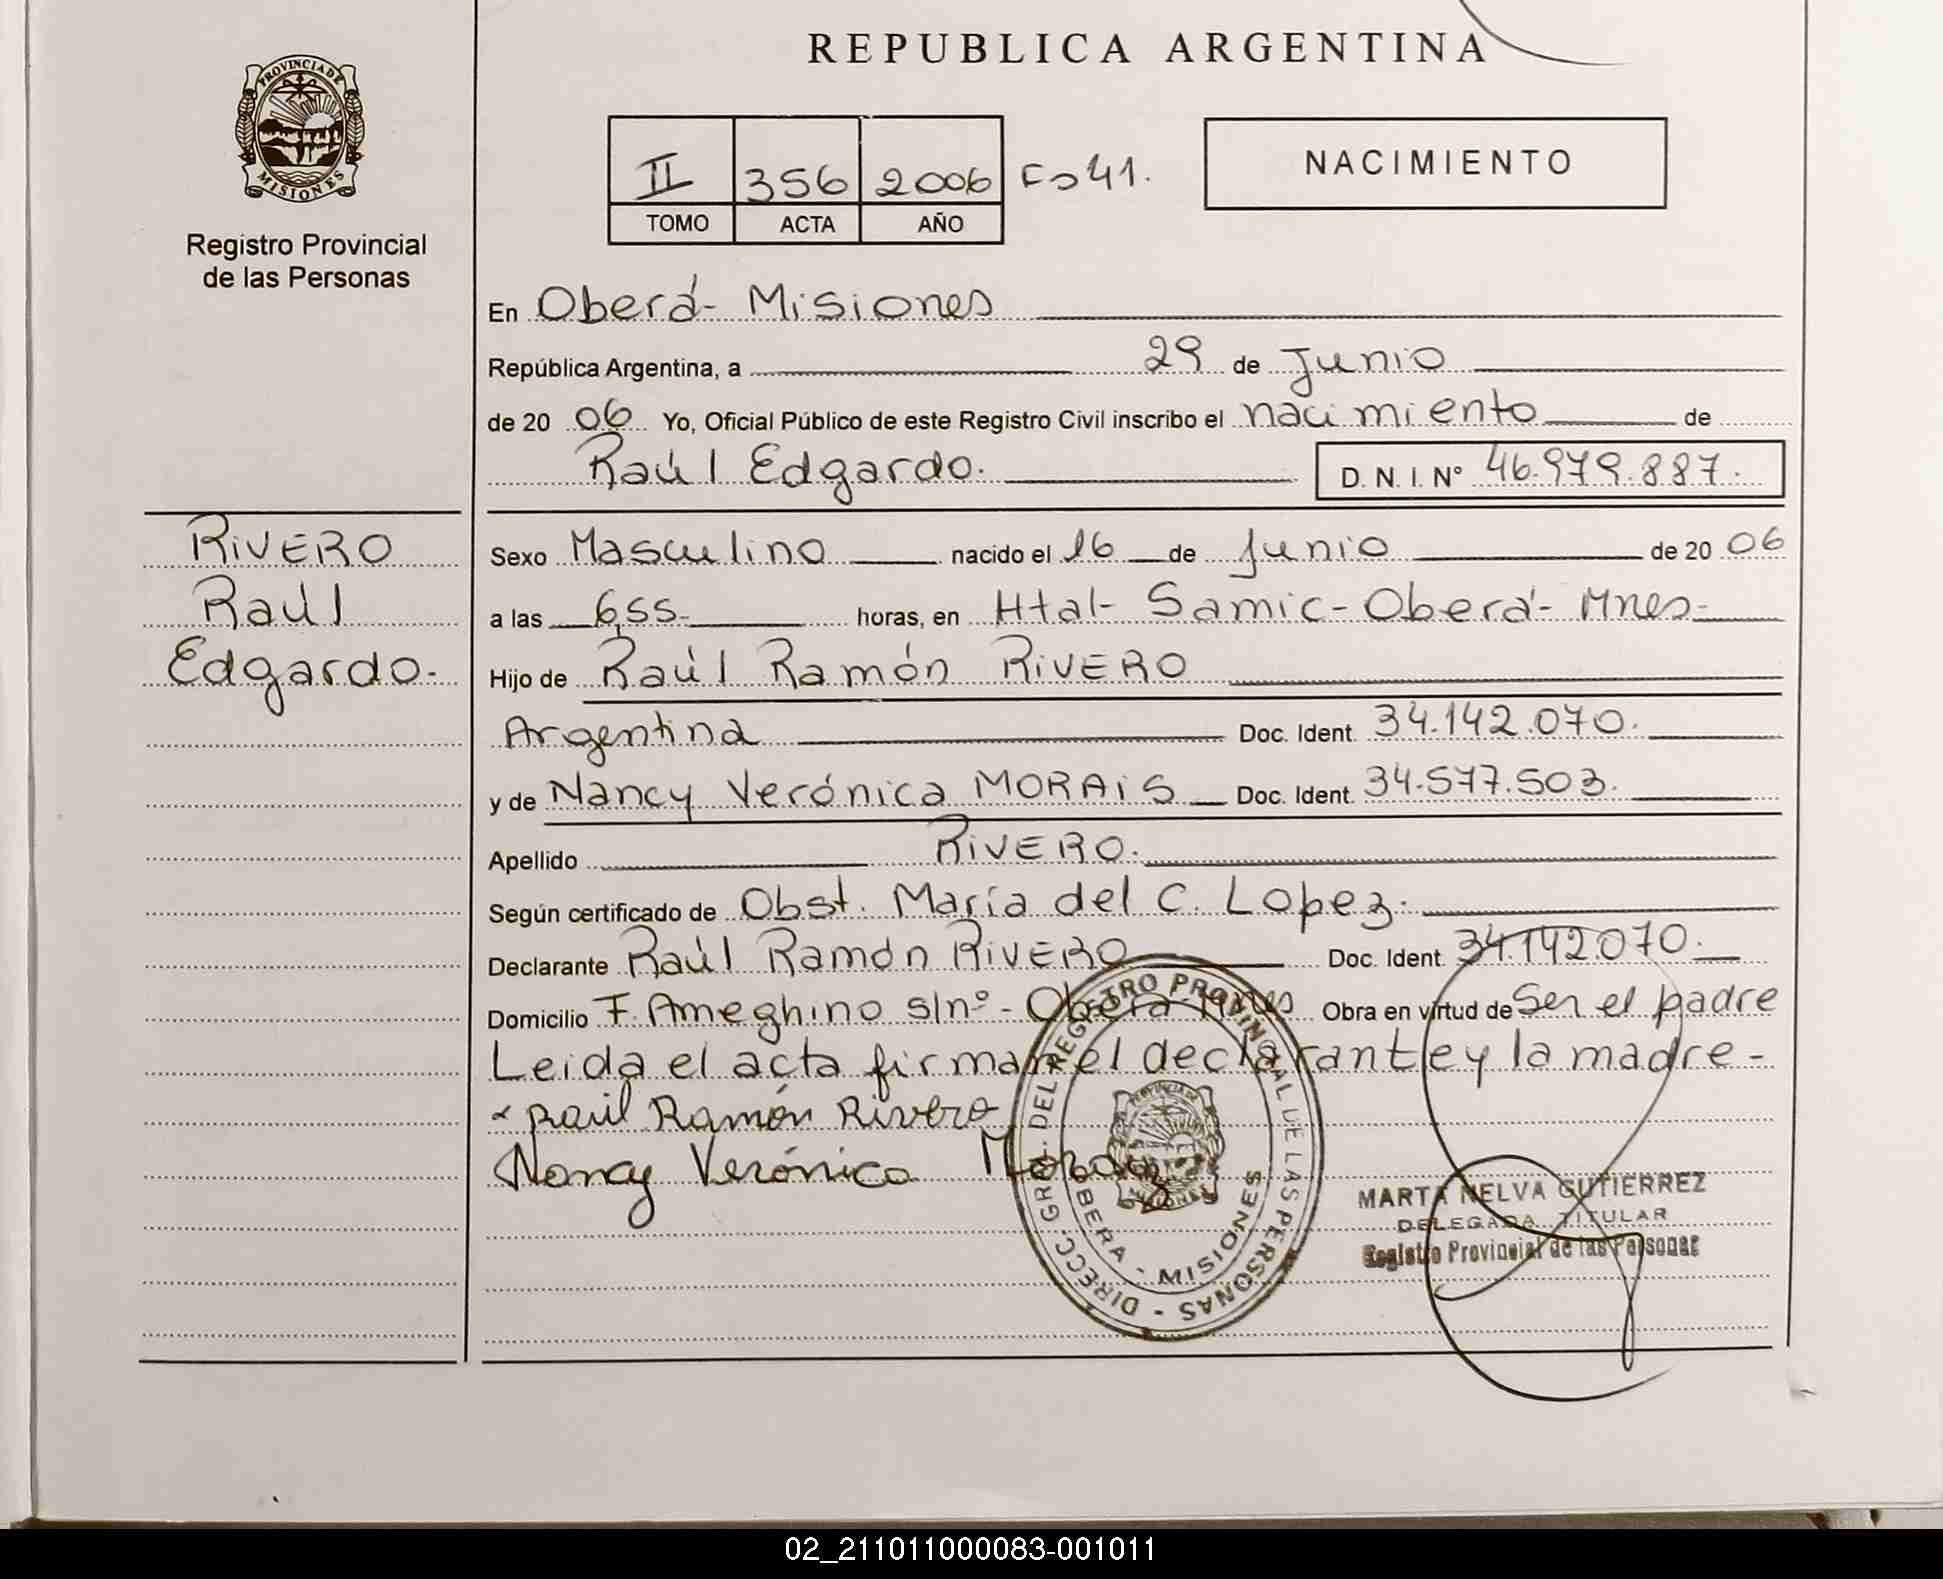 REPUBLICA ARGENTINA
PROVINCIA DE MISIONES
Registro Provincial
de las Personas
II 356 2006 Fo 41.
TOMO ACTA AÑO
NACIMIENTO
En Oberá - Misiones
República Argentina, a 29 de Junio
de 20 06 Yo, Oficial Público de este Registro Civil inscribo el nacimiento de
Raúl Edgardo. D. N. I. Nº 46.979.887.
RIVERO
Raúl
Edgardo.
Sexo Masculino nacido el 16 de Junio de 20 06
a las 6,55 horas, en Htal - Samic - Oberá - Mnes -
Hijo de Raúl Ramón RIVERO
Argentina Doc. Ident. 34.142.070.
y de Nancy Verónica MORAIS Doc. Ident. 34.577.503.
Apellido RIVERO.
Según certificado de Obst. María del C. Lopez.
Declarante Raúl Ramón RIVERO Doc. Ident. 34.142.070.
Domicilio F. Ameghino s/nº - Oberá Mnes Obra en virtud de Ser el padre
Leida el acta firman el declarante y la madre -
Raúl Ramón Rivero
Nancy Verónica
DIRECC. GRAL. DEL REGISTRO PROVINCIAL DE LAS PERSONAS -
OBERA - MISIONES
MARTA NELVA GUTIERREZ
DELEGADA TITULAR
Registro Provincial de las Personas
02_211011000083-001011